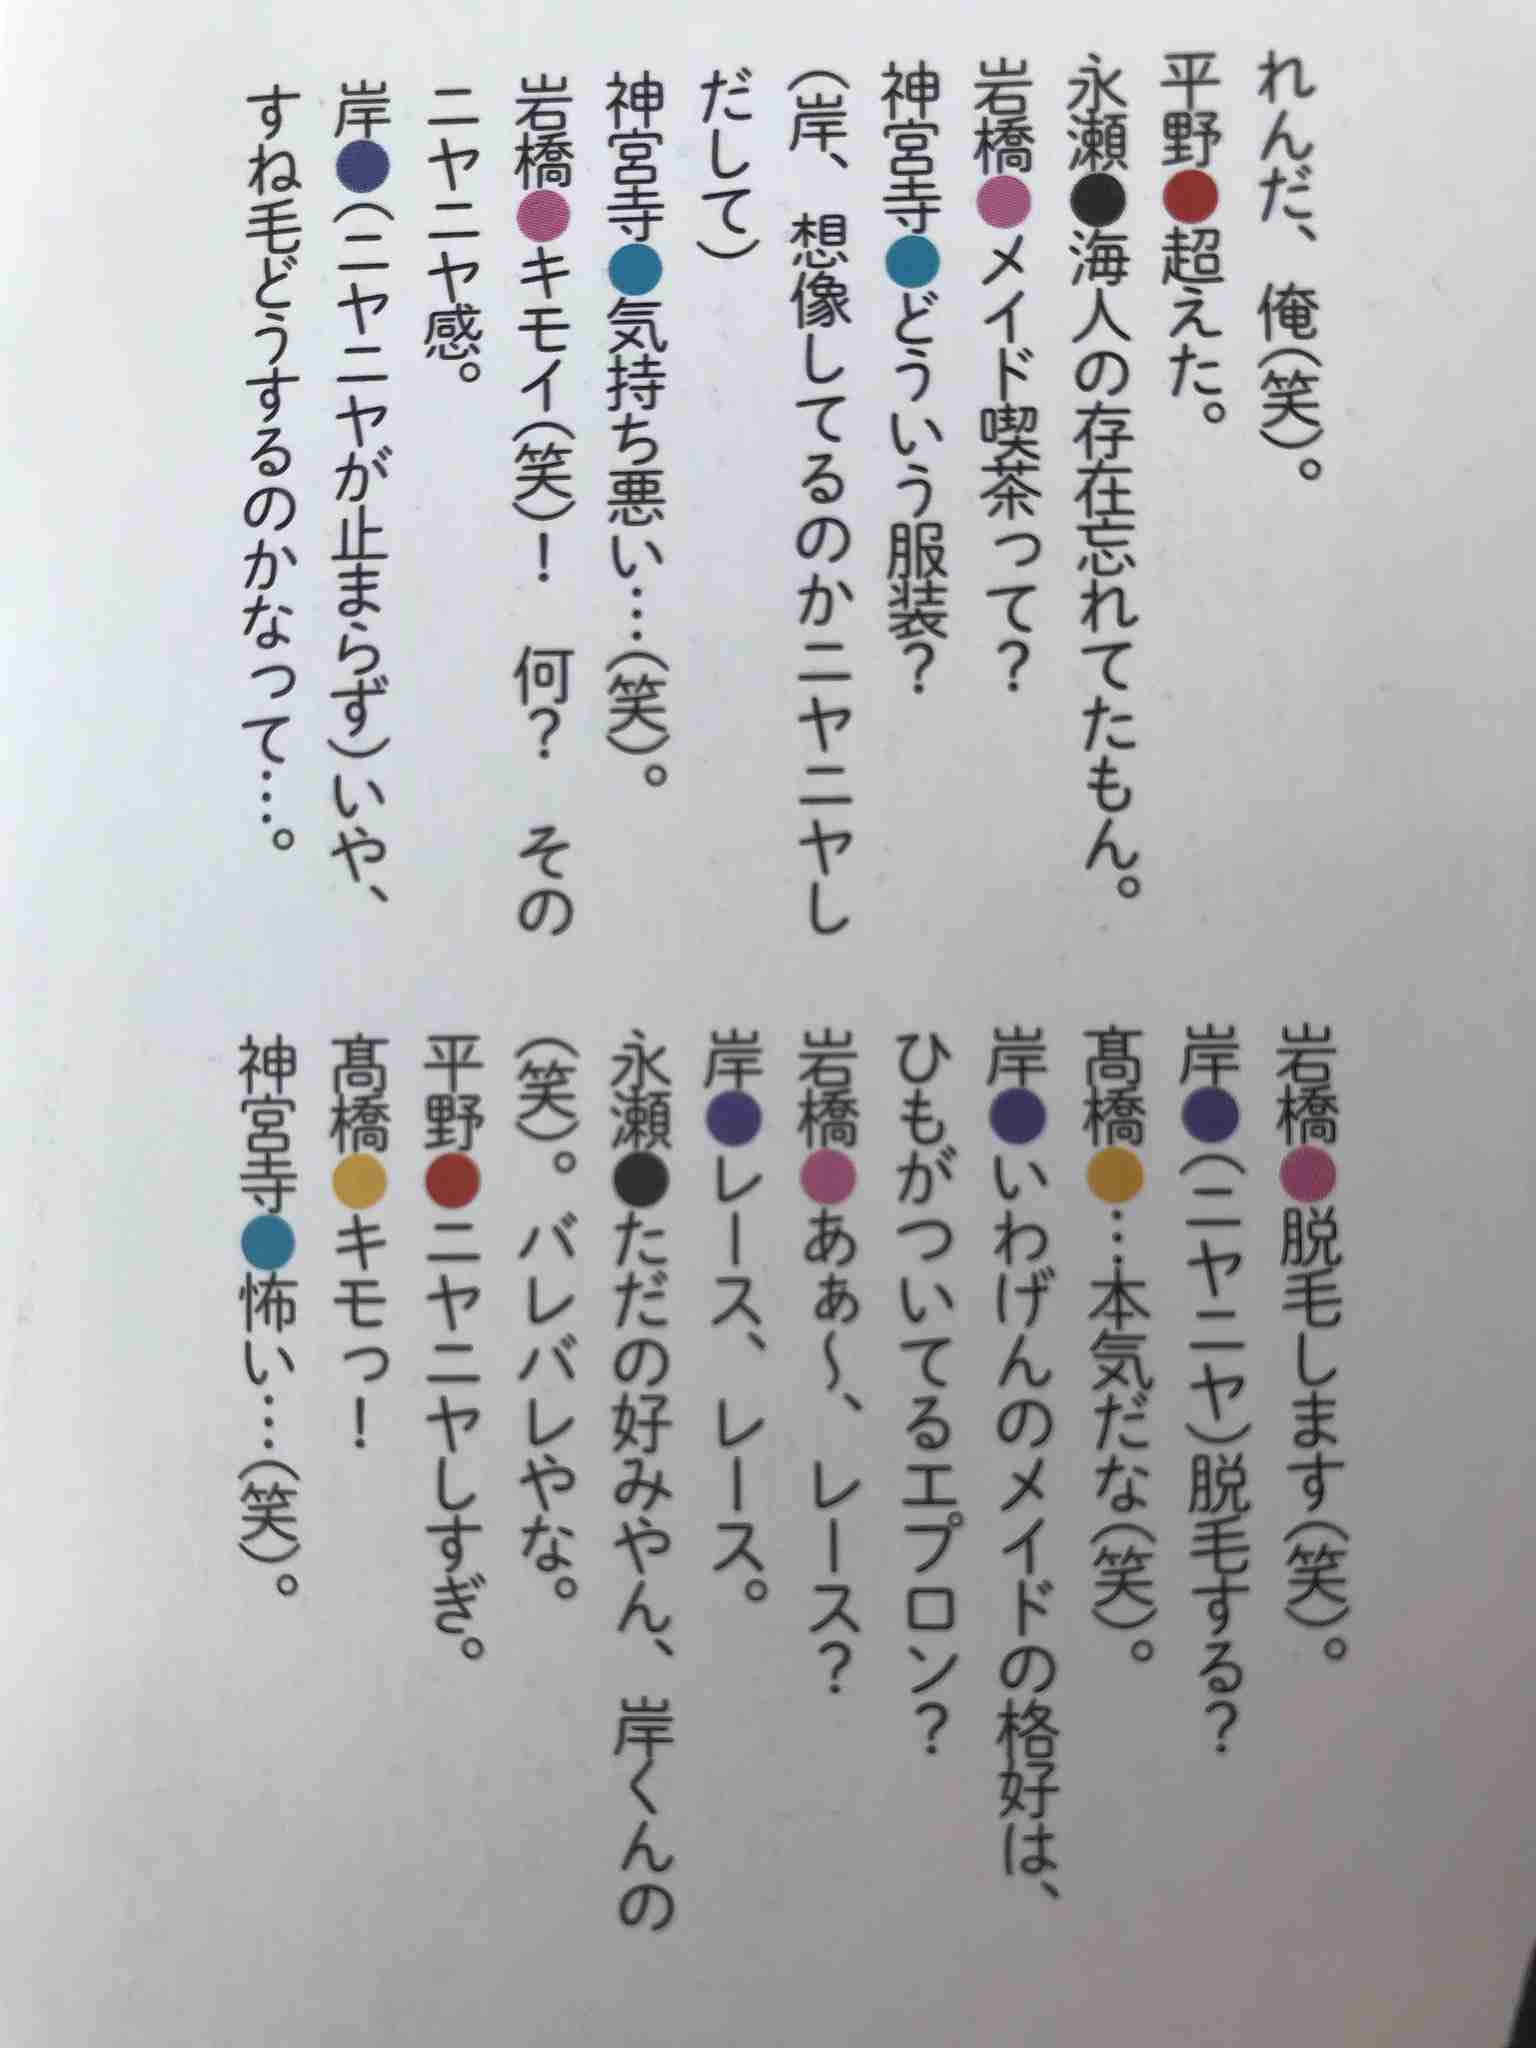 れんだ、俺(笑)。
平野●超えた。
永瀬●海人の存在忘れてたもん。
岩橋●メイド喫茶って?
神宮寺●どういう服装?
(岸、想像してるのかニヤニヤし
だして)
神宮寺●気持ち悪い…(笑)。
岩橋●キモイ(笑)! 何? その
ニヤニヤ感。
岸●(ニヤニヤが止まらず)いや、
すね毛どうするのかなって…。
岩橋●脱毛します(笑)。
岸●(ニヤニヤ)脱毛する?
髙橋●…本気だな(笑)。
岸●いわげんのメイドの格好は、
ひもがついてるエプロン?
岩橋●あぁ〜、レース?
岸●レース、レース。
永瀬●ただの好みやん、岸くんの
(笑)。バレバレやな。
平野●ニヤニヤしすぎ。
髙橋●キモっ!
神宮寺●怖い…(笑)。